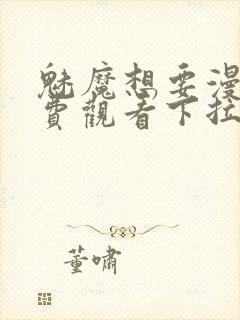 魅魔想要漫
費觀看下拉
董嘯